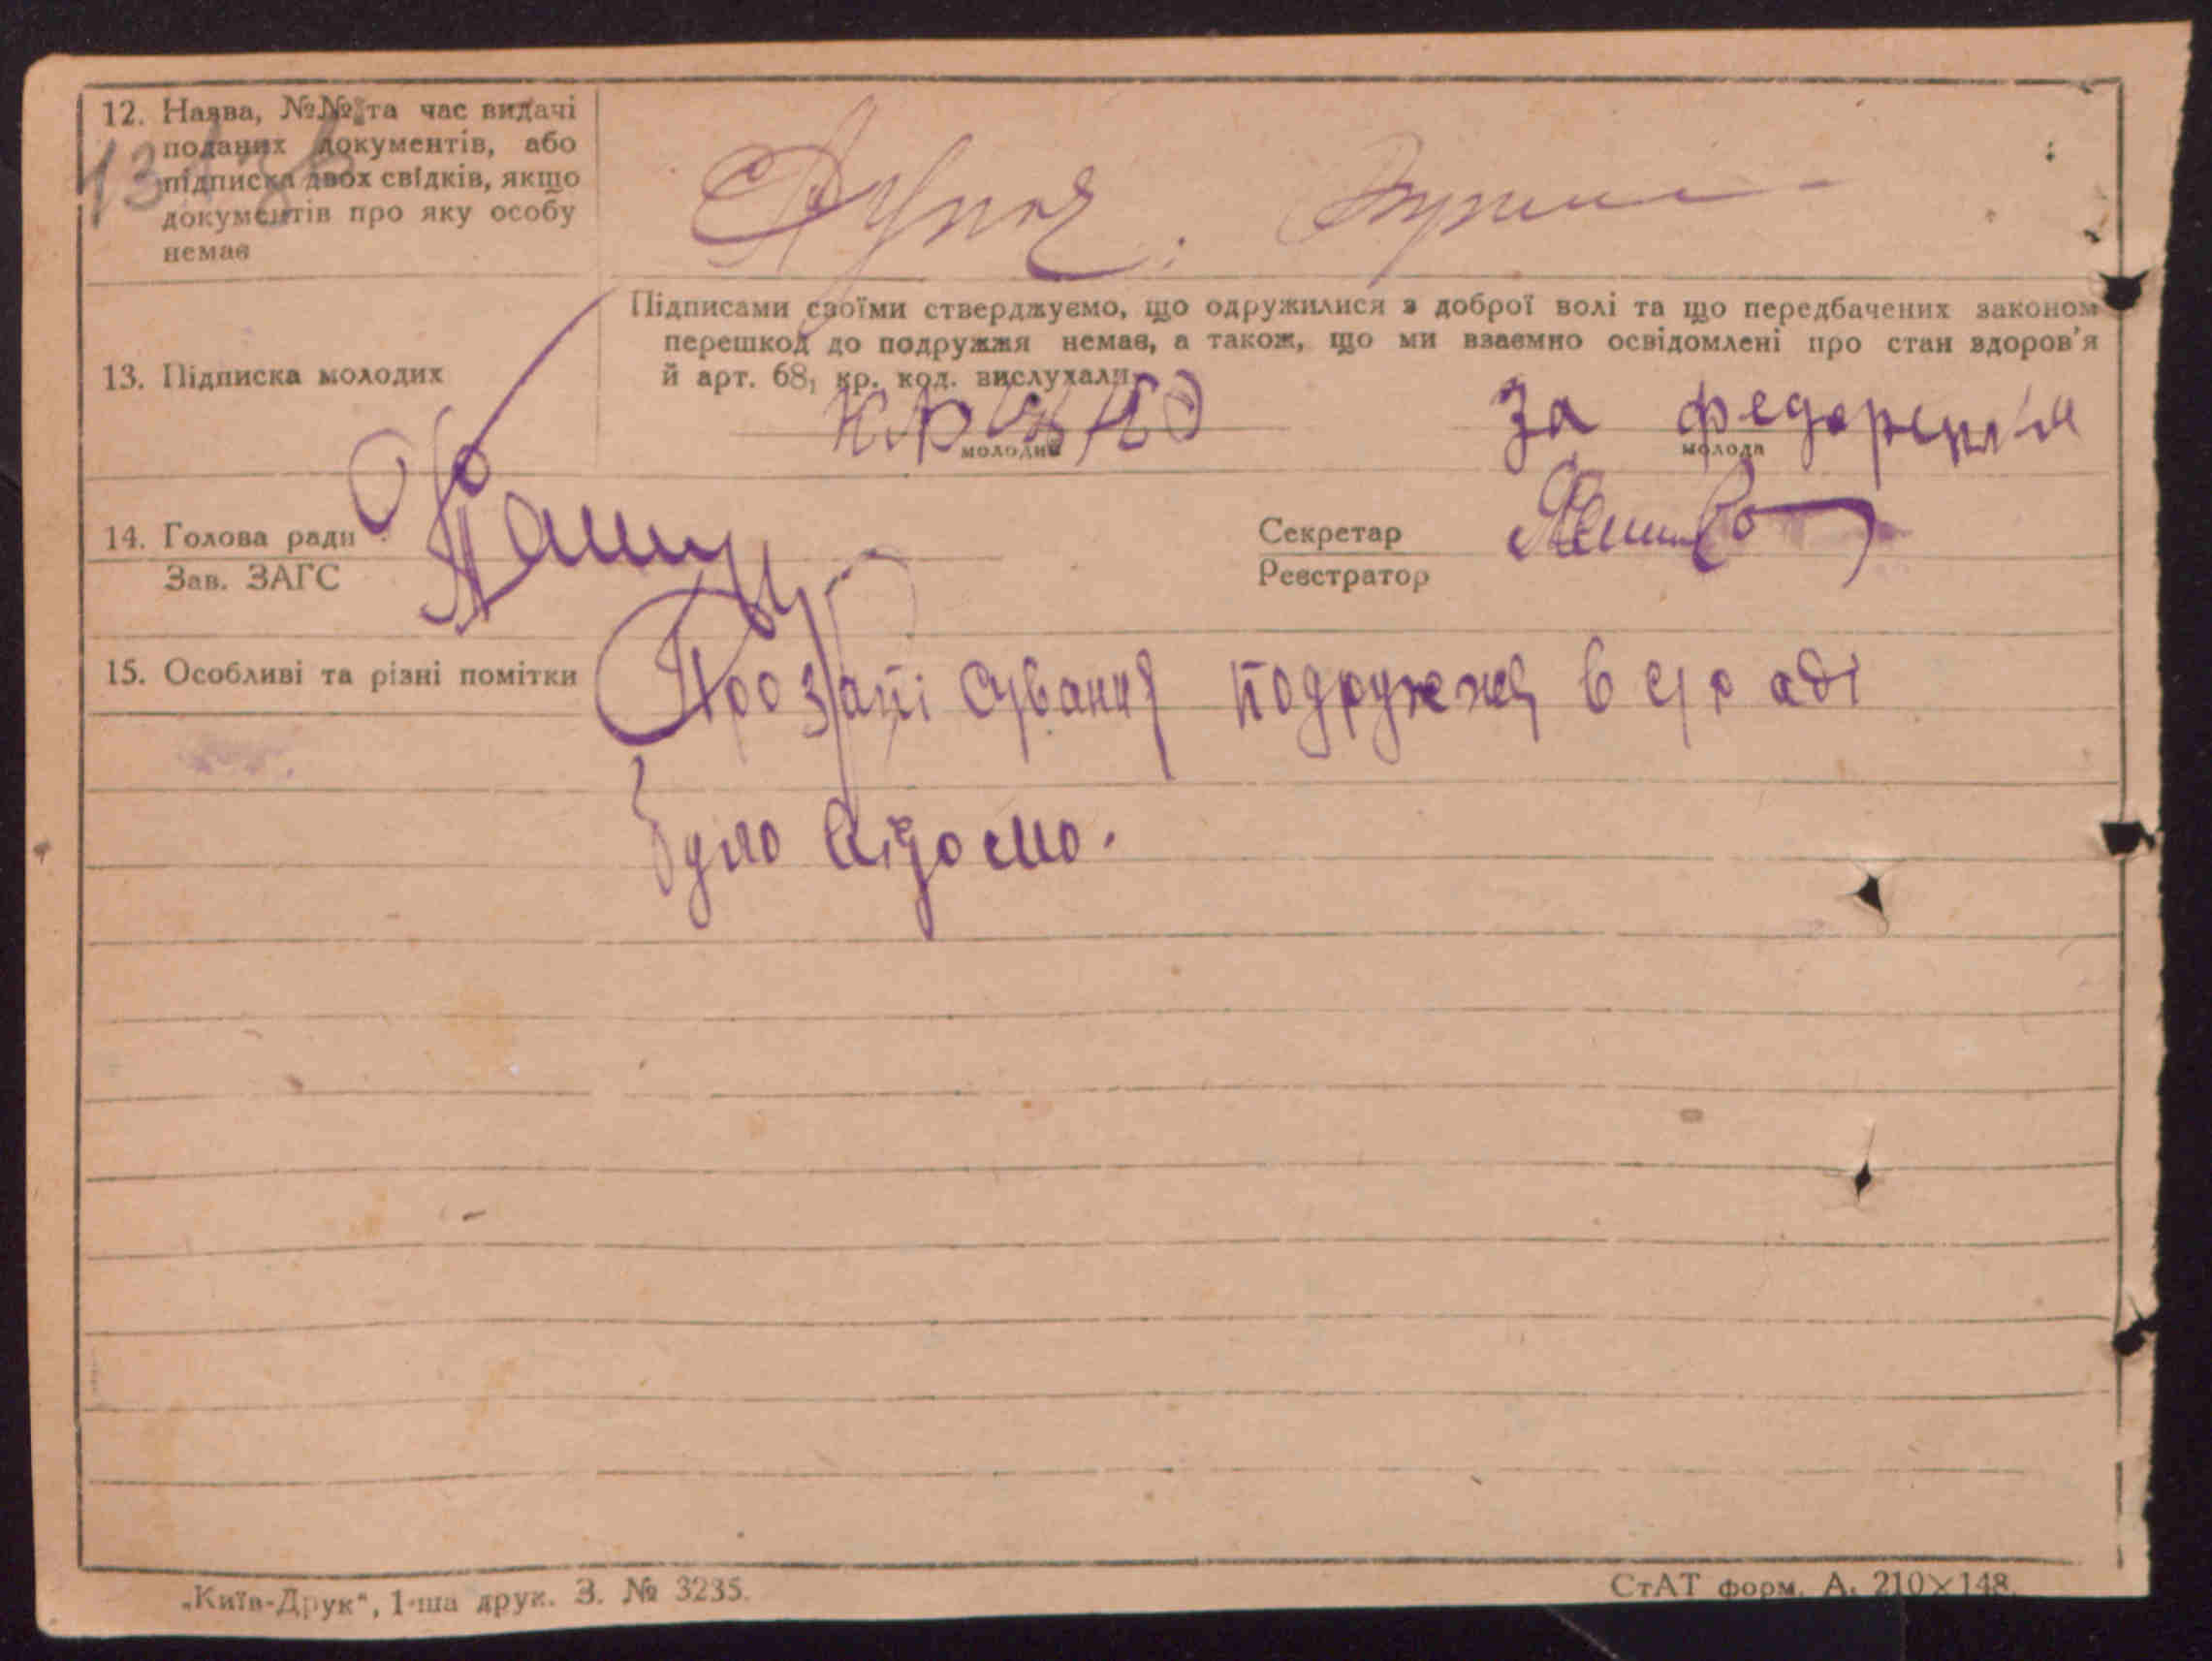 12. Назва, №№ та час видачі
поданих документів, або
підписка двох свідків, якщо
документів про яку особу
немає
Підписами своїми стверджуємо, що одружилися з доброї волі та що передбачених законом
перешкод до подружжя немає, а також, що ми взаємно освідомлені про стан здоров'я
й арт. 68₁ кр. код. вислухали.
13. Підписка молодих
За
молодий
молода
14. Голова ради
Секретар
Зав. ЗАГС
Реєстратор
15. Особливі та різні помітки
Про запісування подружжя в с/раді
було відомо.
„Київ-Друк", 1-ша друк. З. № 3235.
СтАТ форм. А. 210×148.